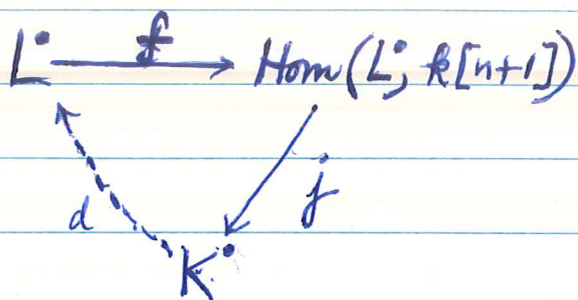 f
L• → Hom(L•, k[n+1])
d j
K•